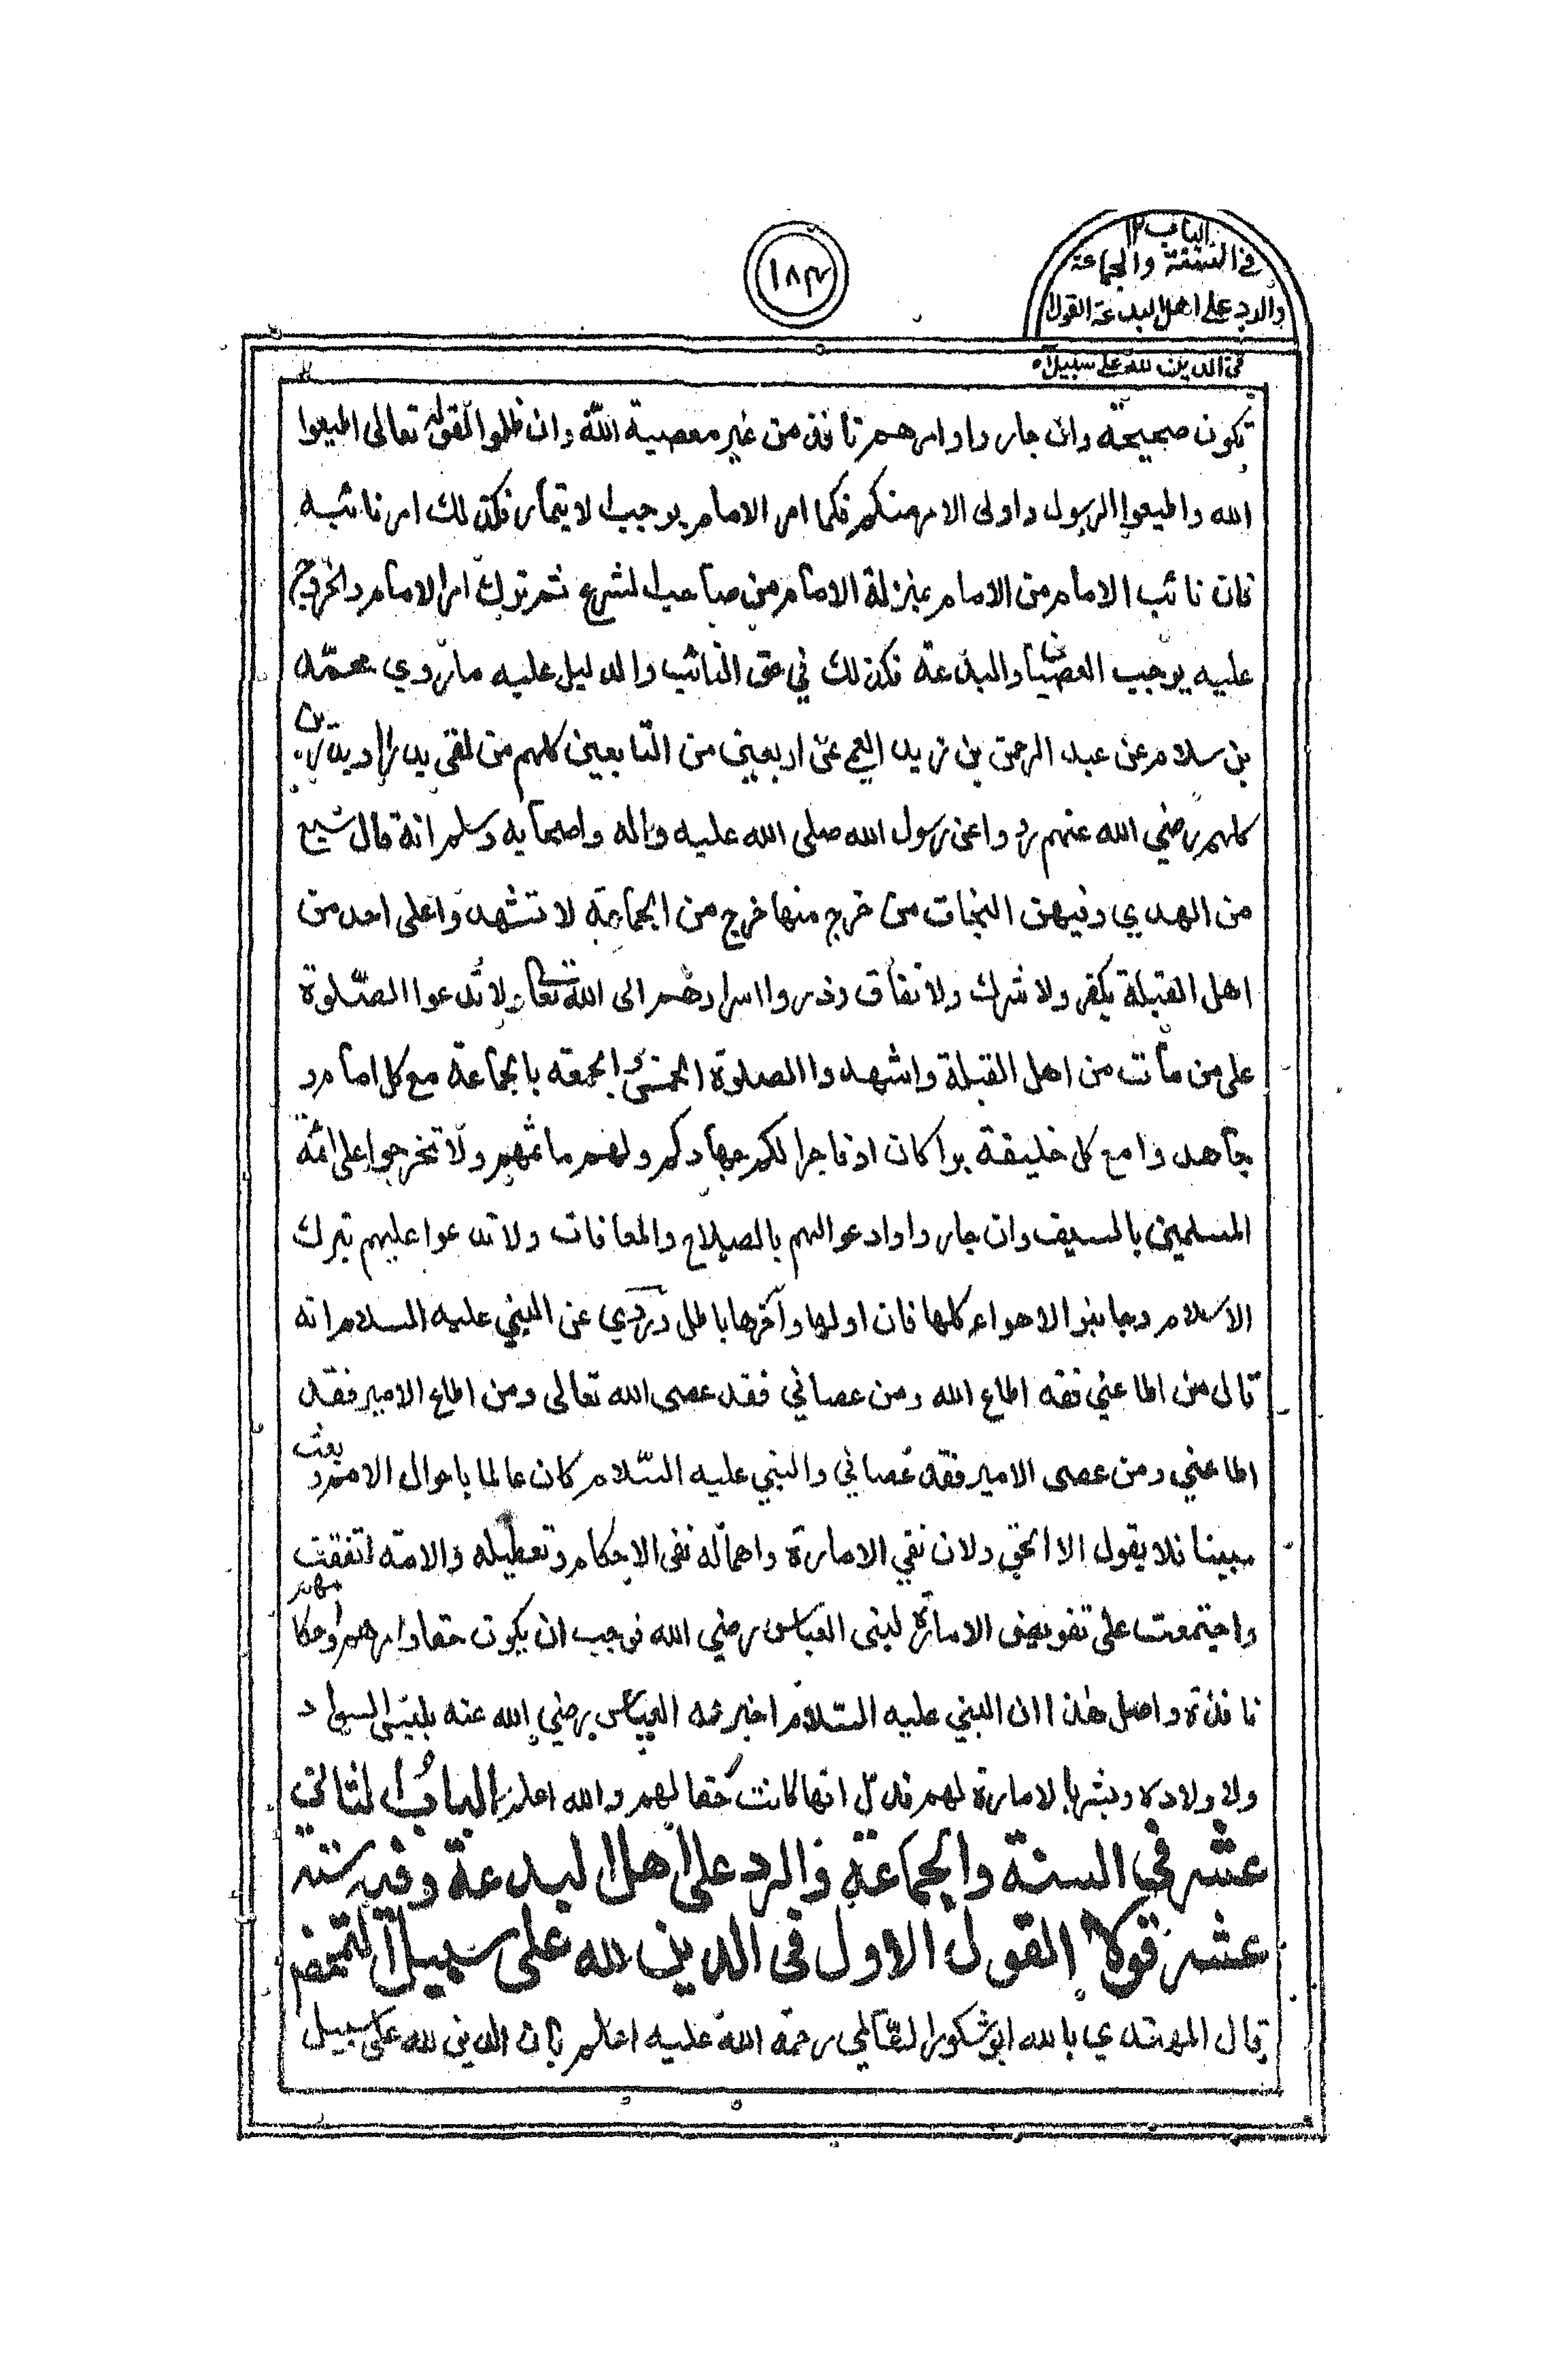 الباب ١٢
في السنة والجماعة
والرد على اهل البدعة القول
في الدين لله على سبيل اه
١٨٣
تكون صحيحة وان جاروا وامرهم نافذ من غير معصية الله وان ظلموا لقوله تعالى اطيعوا
الله واطيعوا الرسول واولى الامر منكم فكما امر الامام يوجب الايتمار فكذلك امر نائبه
فان نائب الامام من الامام بمنزلة الامام من صاحب الشرع ثم ترك امر الامام والخروج
عليه يوجب العصيان والبدعة فكذلك في حق النائب والدليل عليه ما روي محمد
بن سلام عن عبد الرحمن بن زيد العمي عن اربعين من التابعين كلهم من لقي
كلهم رضي الله عنهم رووا عن رسول الله صلى الله عليه واله واصحابه وسلم انه قال سبع
من الهدي وفيهن النجات من خرج منها خرج من الجماعة لا تشهدوا على احد من
اهل القبلة بكفر ولا شرك ولا نفاق وذروا اسرارهم الى الله تعالى ولا تدعوا الصلوة
على من مات من اهل القبلة واشهدوا الصلوة الخمس والجمعه بالجماعة مع كل امام و
جاهدوا مع كل خليفة برا كان او فاجرا لكم جهادكم ولهم ماثمهم ولا تخرجوا على ائمة
المسلمين بالسيف وان جاروا وادعوا لهم بالصلاح والمعافات ولا تدعوا عليهم بترك
الاسلام وجانبوا الاهواء كلها فان اولها وآخرها باطل وروي عن النبي عليه السلام انه
قال من اطاعني فقد اطاع الله ومن عصاني فقد عصى الله تعالى ومن اطاع الامير فقد
اطاعني ومن عصى الامير فقد عصاني والنبي عليه السلام كان عالما باحوال الامة وبعث
مبينا فلا يقول الا الحق ولان نفي الامارة واهماله نفى الاحكام وتعطيله والامة اتفقت
واجتمعت على تفويض الامارة لبنى العباس رضي الله فوجب ان يكون حقا وامرهم واحكامهم
نافذة واصل هذا ان النبي عليه السلام اخبر عمه العباس رضي الله عنه بلبس السواد
ولاولاده وبشر بالامارة لهم فدل انها كانت حقا لهم والله اعلم الباب الثاني
عشر في السنة والجماعة والرد على اهل البدعة وفيه ستة
عشر قولا القول الاول فى الدين لله على سبيل التمحض
قال المهتدي بالله ابو شكور السالمي رحمة الله عليه اعلم بان الدين لله على سبيل